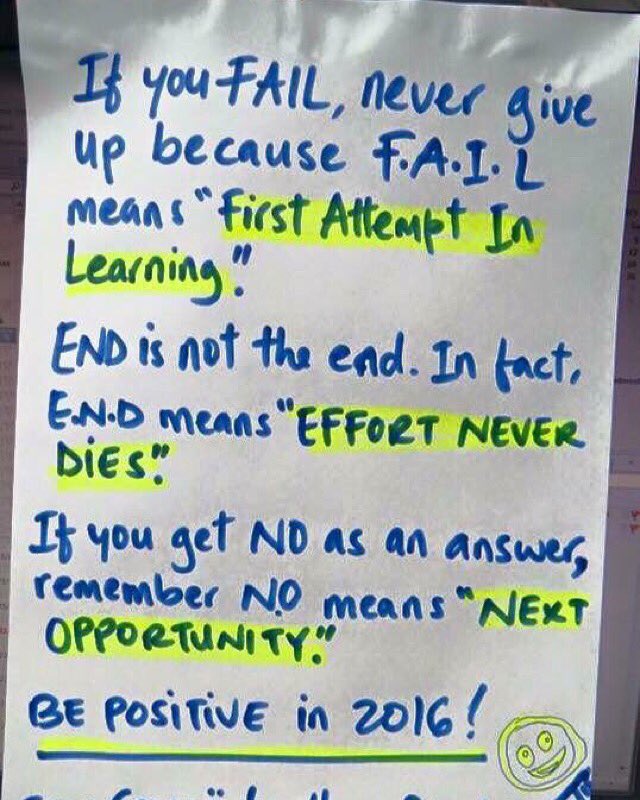 If you FAIL, never give
up because F.A.I.L
means "First Attempt In
Learning."
END is not the end. In fact,
E.N.D means "EFFORT NEVER
DiES."
If you get NO as an answer,
remember N.O means "NEXT
OPPORTUNITY."
BE POSiTiVE in 2016!